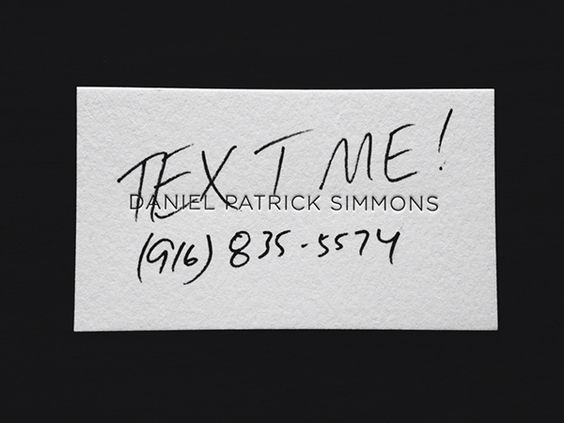 TEXT ME!
DANIEL PATRICK SIMMONS
(916) 835-5574